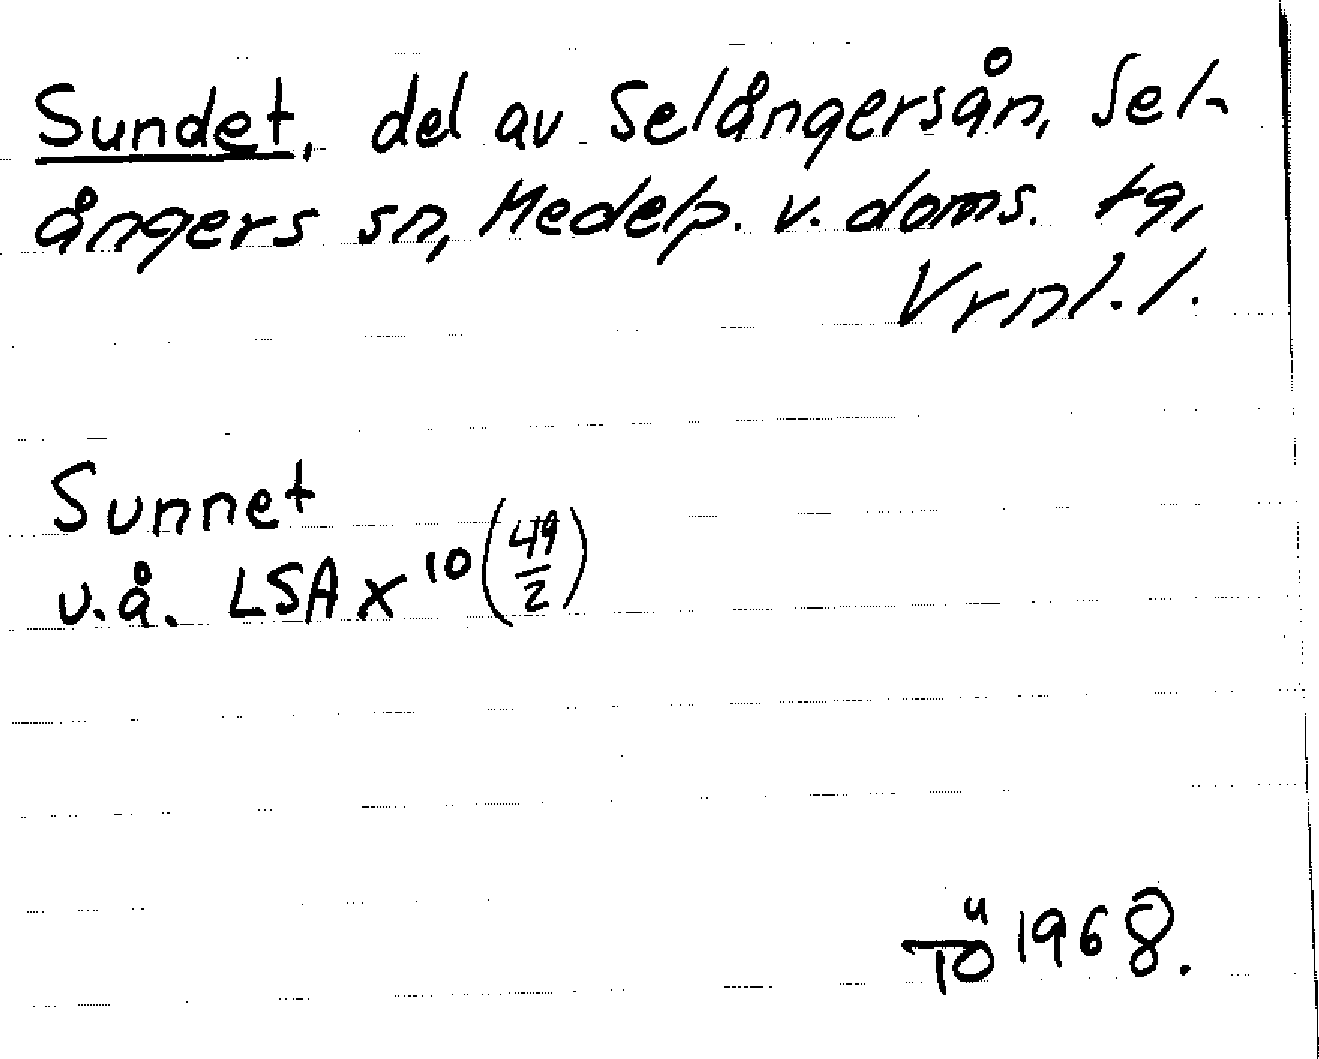 Sundet, del av Selångersån, Sel-
ångers sn, Medelp. v. doms. tg,
Vrnl. l.
Sunnet
u.å. LSA X 10 (49/2)
4/10 1968.